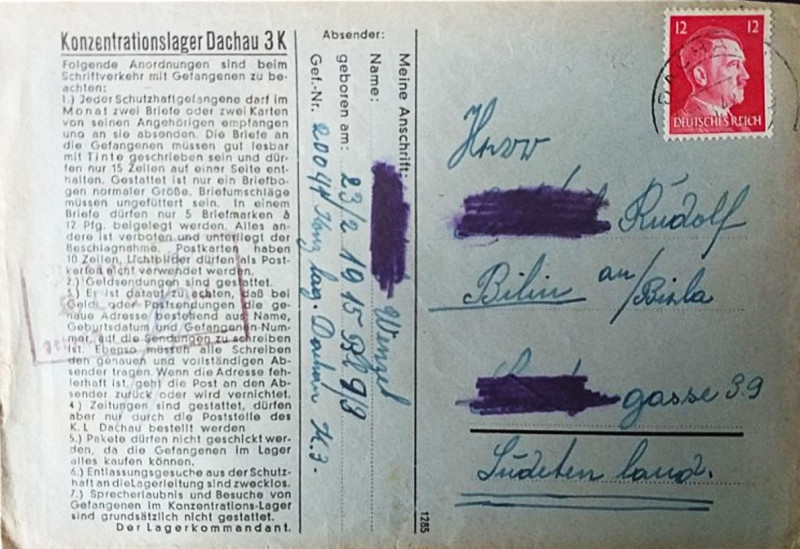 Konzentrationslager Dachau 3 K
Folgende Anordnungen sind beim
Schriftverkehr mit Gefangenen zu be-
achten:
1.) Jeder Schutzhaftgefangene darf im
Monat zwei Briefe oder zwei Karten
von seinen Angehörigen empfangen
und an sie absenden. Die Briefe an
die Gefangenen müssen gut lesbar
mit Tinte geschrieben sein und dür-
fen nur 15 Zeilen auf einer Seite ent-
halten. Gestattet ist nur ein Briefbo-
gen normaler Größe. Briefumschläge
müssen ungefüttert sein. In einem
Briefe dürfen nur 5 Briefmarken à
12 Pfg. beigelegt werden. Alles an-
dere ist verboten und unterliegt der
Beschlagnahme. Postkarten haben
10 Zeilen. Lichtbilder dürfen als Post-
karten nicht verwendet werden.
2.) Geldsendungen sind gestattet.
3.) Es ist darauf zu achten, daß bei
Geld- oder Postsendungen die ge-
naue Adresse bestehend aus Name,
Geburtsdatum und Gefangenen-Num-
mer auf die Sendungen zu schreiben
ist. Ebenso müssen alle Schreiben
den genauen und vollständigen Ab-
sender tragen. Wenn die Adresse feh-
lerhaft ist, geht die Post an den Ab-
sender zurück oder wird vernichtet.
4.) Zeitungen sind gestattet, dürfen
aber nur durch die Poststelle des
K. L. Dachau bestellt werden
5.) Pakete dürfen nicht geschickt wer-
den, da die Gefangenen im Lager
alles kaufen können.
6.) Entlassungsgesuche aus der Schutz-
haft an die Lagerleitung sind zwecklos.
7.) Sprecherlaubnis und Besuche von
Gefangenen im Konzentrations-Lager
sind grundsätzlich nicht gestattet.
Der Lagerkommandant.
Absender:
Meine Anschrift:
Name: Wenzel
geboren am: 23/2 1915 Bl 9/3
Gef.-Nr. 20047 Konz lag. Dachau K. 3.
1285
12 12
DEUTSCHES REICH
Herrn
Rudolf
Bilin an/Biela
gasse 39
Sudeten land.